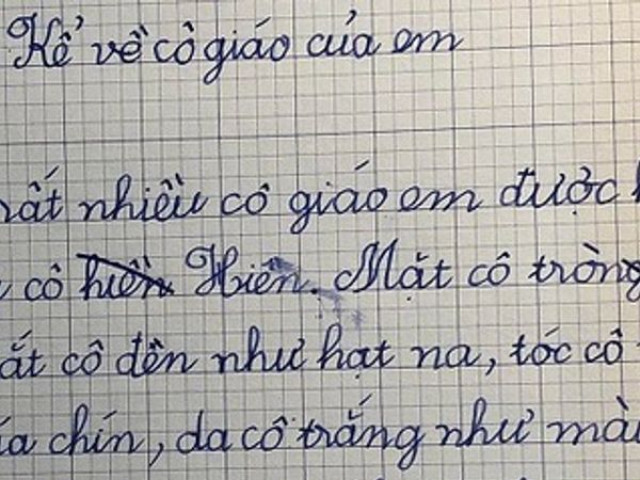 Kể về cô giáo của em
rất nhiều cô giáo em được
cô hiền Hiên. Mặt cô tròng
ắt cô đên như hạt na, tóc cô
ía chín, da cô trắng như mà